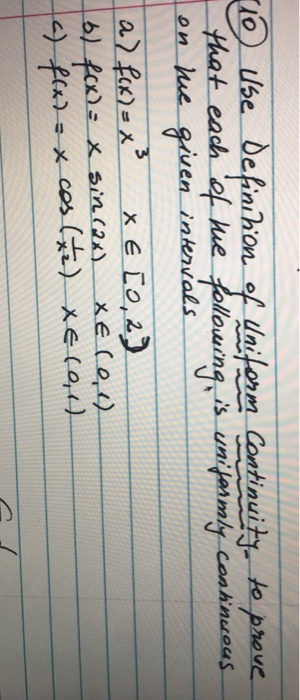 (10) Use Definition of Uniform Continuity to prove
that each of the following is uniformly continuous
on the given intervals
a) f(x) = x³ x ∈ [0, 2)
b) f(x) = x sin(2x) x ∈ (0,1)
c) f(x) = x cos(1/x²) x ∈ (0,1)